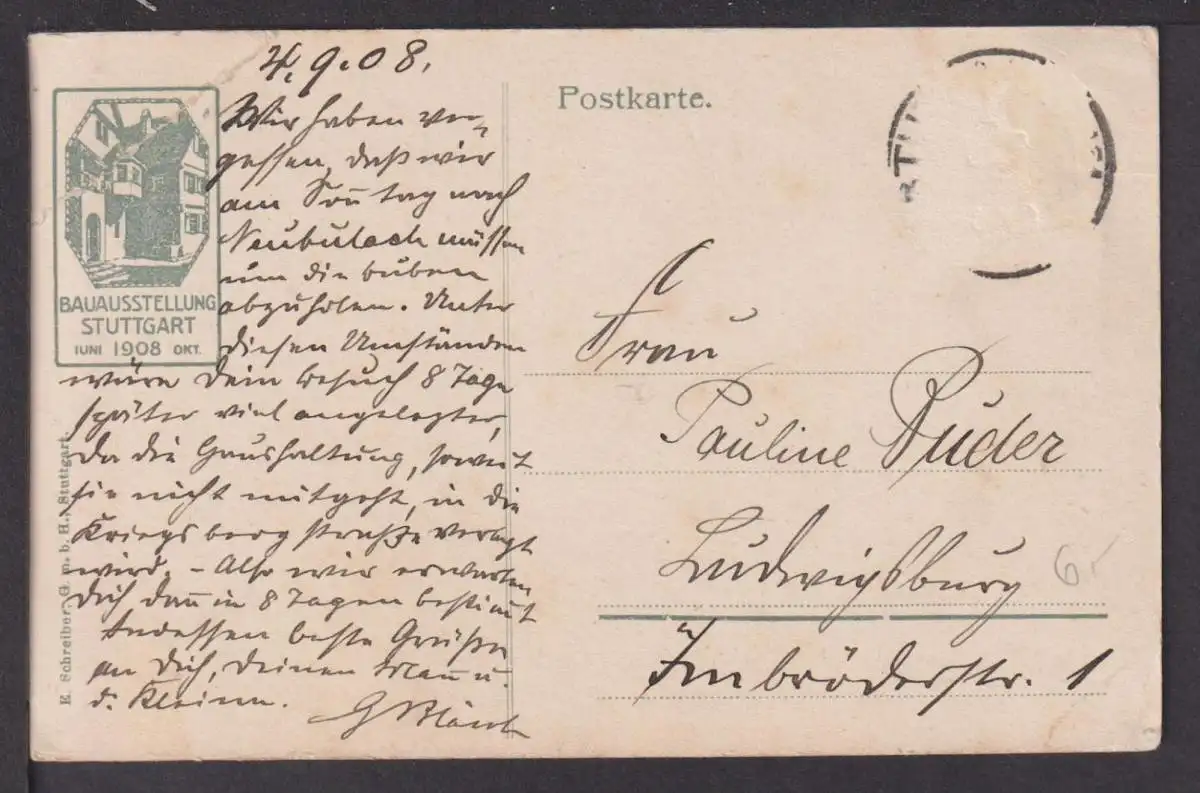 4.9.08.
Wir haben ver-
gessen, daß wir
am Son̄tag nach
Neubulach müssen
um die buben
abzuholen. Unter
diesen Umständen
wäre Dein besuch 8 Tage
später viel angelegter,
da die Haushaltung, soweit
sie nicht mitgeht, in die
Kriegsbergstraße verlegt
wird. – Also wir erwarten
Dich dan̄ in 8 Tagen bestim̄t
Indessen beste Grüße
an Dich, Deinen Man̄ u.
d. Kleinen.
G
BAUAUSSTELLUNG
STUTTGART
JUNI 1908 OKT.
E. Schreiber, G. m. b. H., Stuttgart.
Postkarte.
Frau
Pauline Duder
Ludwigsburg
Imbröderstr. 1
6.-